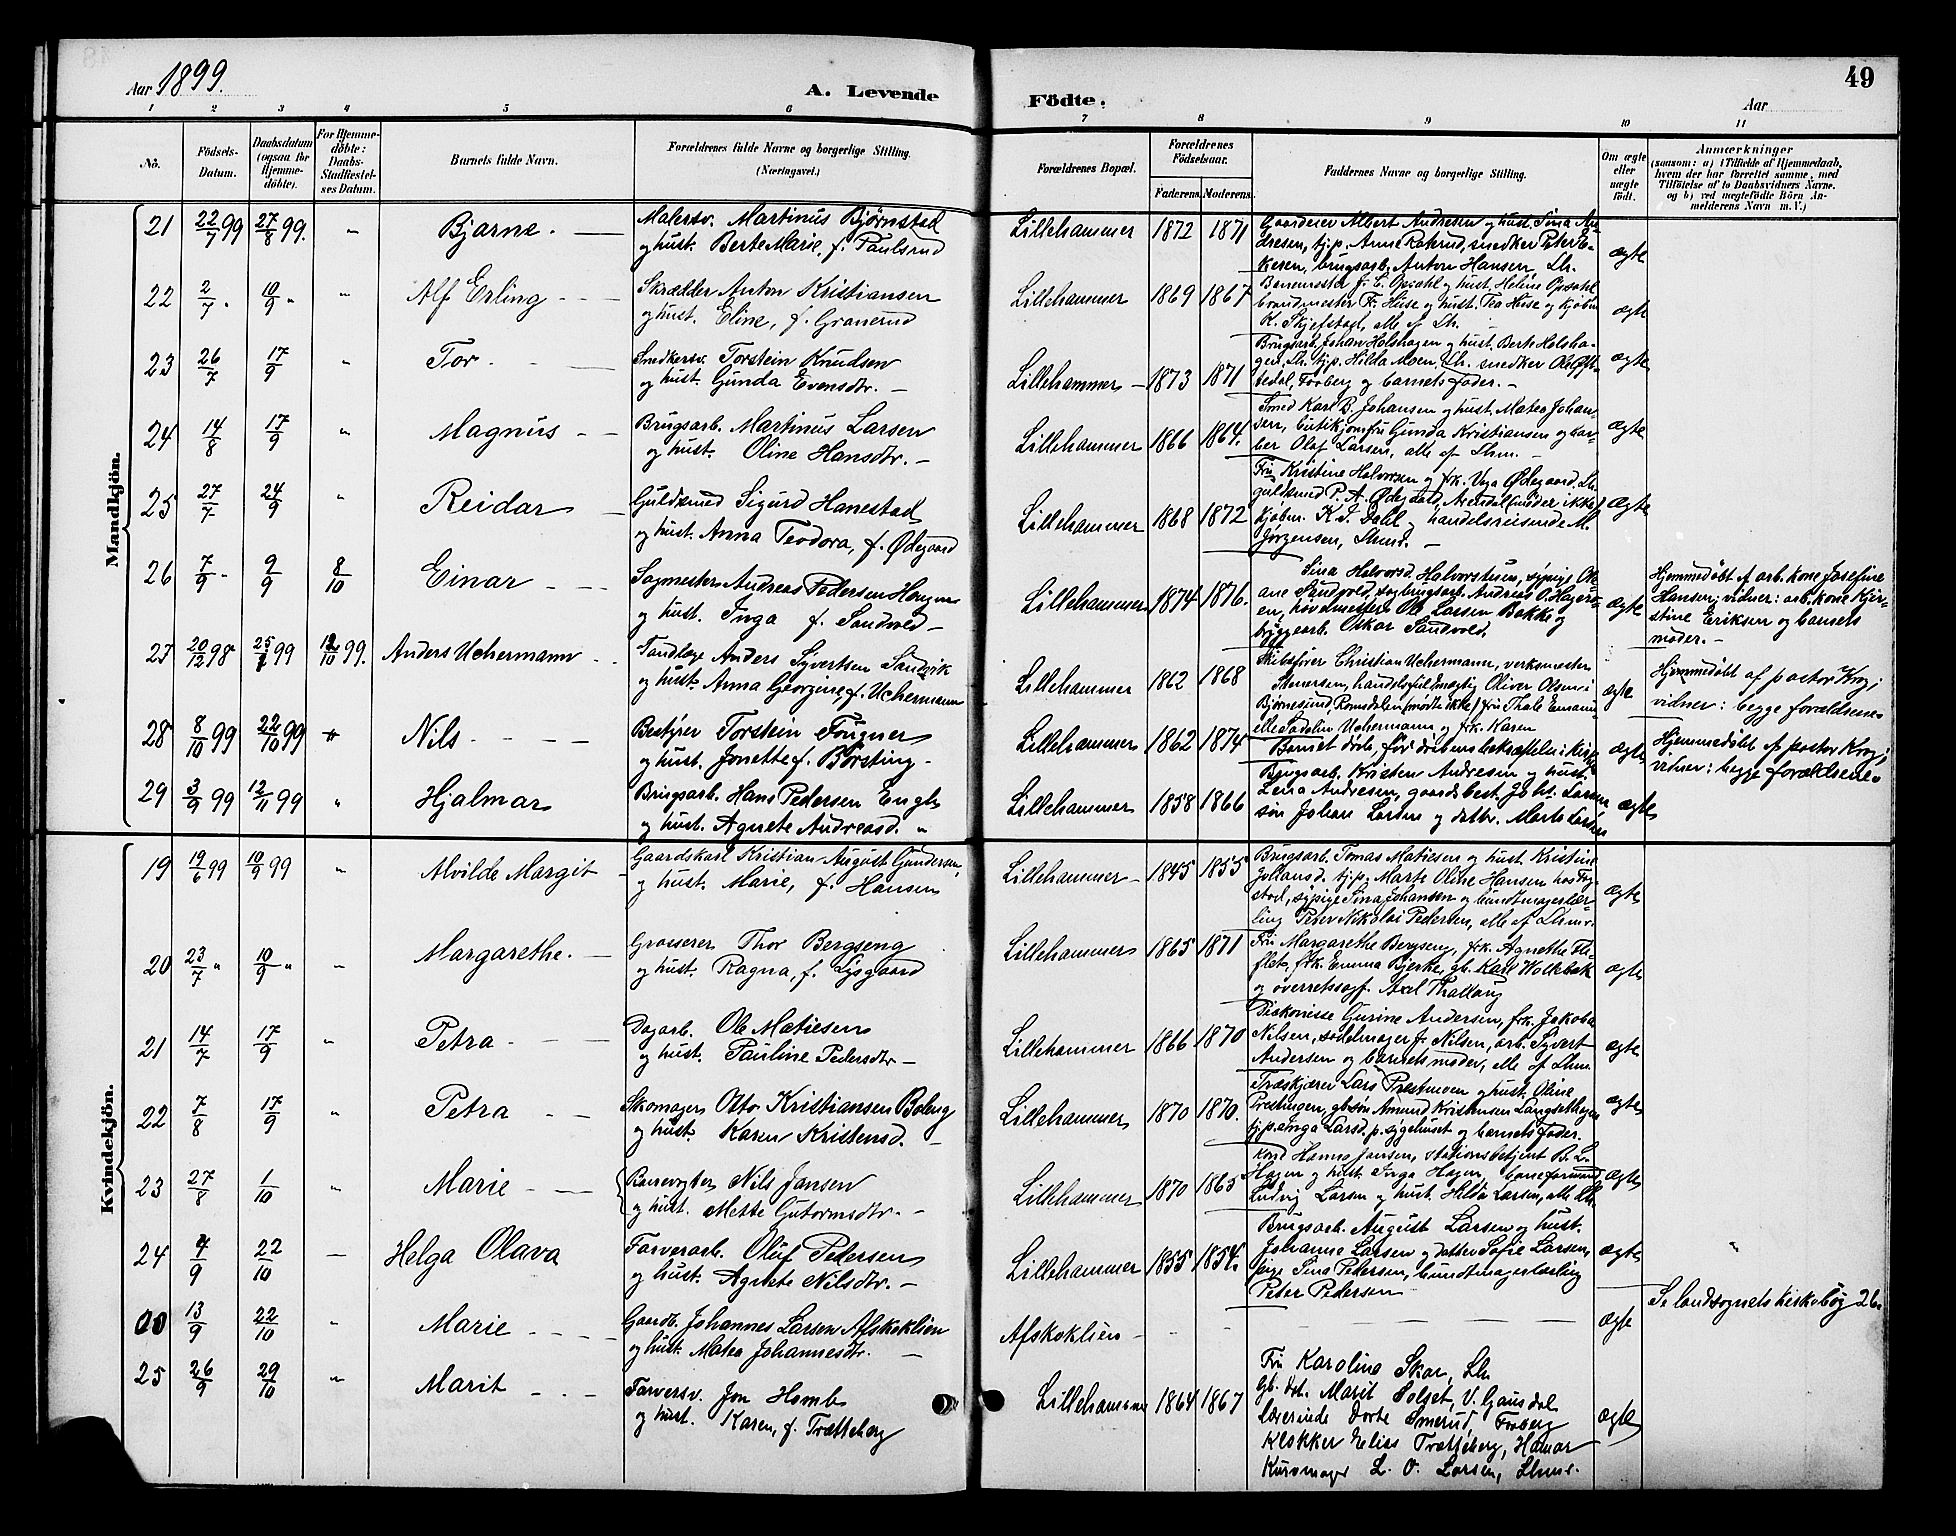 Aar 1899.
A. Levende
Födte.
Aar
49
1 2 3 4 5 6 7 8 9 10 11
No.
Födsels-Datum.
Daabsdatum (ogsaa for Hjemme-döbte).
For Hjemme-döbte: Daabs-Stadfæstelses Datum.
Barnets fulde Navn.
Forældrenes fulde Navne og borgerlige Stilling. (Næringsvei.)
Forældrenes Bopæl.
Forældrenes Födselsaar.
Faderens. Moderens.
Faddernes Navne og borgerlige Stilling.
Om ægte eller uægte födt.
Anmærkninger
(saasom: a) i Tilfælde af Hjemmedaab, hvem der har forrettet samme, med Tilföielse af to Daabsvidners Navne. og b) ved uægtefödte Börn Anmelderens Navn m. V.)
Mandkjön.
21 22/7 99 27/8 99. " Bjarne. Malersv. Martinus Bjørnstad
og hust. Berte Marie, f. Paulsrud
Lillehammer 1872 1871
Gaardeier Albert Andresen og hust. Sina Andresen, tj.p. Anne Roterud, snedker Peter Ekeren, brugsarb. Anton Hansen, Lh.
ægte
22 2/7 " 10/9 " " Alf Erling Skrædder Anton Kristiansen
og hust. Eline, f. Granerud
Lillehammer 1869 1867
Banemester J. C. Opsahl og hust. Heline Opsahl
brandmester Fr. Huse og hust. Tea Huse og kjøbm.
K. Skjefstad, alle af Lh.
ægte
23 26/7 17/9 " Tor Snedkersv. Torstein Knudsen
og hust. Gunda Evensdtr.
Lillehammer 1873 1871
Brugsarb. Johan Holshagen og hust. Berte Holshagen, Lh. tj.p. Hilda Moen, Lh. snedker Ole
Faaberg og barnets fader.
ægte
24 14/8 17/9 " Magnus Brugsarb. Martinus Larsen
og hust. Oline Hansdtr.
Lillehammer 1866 1864.
Smed Karl B. Johansen og hust. Matea Johansen, butikjomfru Gunda Kristiansen og barber Olaf Larsen, alle af Lhm.
ægte
25 27/7 24/9 " Reidar Guldsmed Sigurd Hanestad
og hust. Anna Teodora, f. Ødegaard
Lillehammer 1868 1872
Fru Kristine Halvorsen og frk. Vega Ødegaard, Lh.
guldsmed P. A. Ødegaard, Arendal (møder ikke)
kjøbm. K. J. Dahl og handelsreisende M.
Jørgensen, Lhmr.
ægte
26 7/9 " 9/9 8/10 Einar Sagmester Andreas Pedersen Haugen
og hust. Inga f. Sandvold
Lillehammer 1874 1876.
Sina Halvorsd. Halvorstuen, sypige Oleane Sandvold, sagbrugsarb. Andreas O. Hageroen, høvelmester Ole Larsen Bakke og
bryggearb. Oskar Sandvold.
ægte
Hjemmedøbt af arb. kone Josefine
Hansen; vidner: arb. kone Kjerstine Eriksen og barnets
moder.
27 20/12 98 25/1 99 12/10 99. Anders Uchermann Tandlæge Anders Syvertsen Sandvik
og hust. Anna Georgine, f. Uchermann
Lillehammer 1862 1868
Skibsfører Christian Uchermann, verksmester
Stenersen, handelsfuldmægtig Oliver Olsen i
Bjørnesund, Romsdalen (mødte ikke) fru Thale Emanuelle Sadolin Uchermann og frk. Karen
ægte
Hjemmedøbt af pastor Krog;
vidner: begge forældrene.
28 8/10 99 22/10 99 " Nils Bestyrer Torstein Fougner
og hust. Jonette f. Børsting
Lillehammer 1862 1874
Barnet døde, før daabens bekræftelse i kirke
ægte
Hjemmedøbt af pastor Krog;
vidner: begge forældrene.
29 3/9 99 12/11 99 " Hjalmar Brugsarb. Hans Pedersen Engh
og hust. Agnete Andreasd.
Lillehammer 1858 1866
Brugsarb. Kristen Andresen og hust.
Lena Andresen, gaardbest. Johs. Larsen
søn Johan Larsen og dattr. Marte Larsen
ægte
Kvindekjön.
19 19/6 99 10/9 99 " Alvilde Margit Gaardskarl Kristian August Gundersen,
og hust. Marie, f. Hansen
Lillehammer 1845 1855
Brugsarb. Tomas Matiesen og hust. Kristine
tj.p. Marte Oline Hansen hos
sypige Sina Johansen og buntmagerlærling Peter Nikolai Pedersen, alle af Lhmr.
ægte
20 23/7 " 10/9 " " Margarethe. Grosserer Thor Bergseng
og hust. Ragna, f. Lysgaard
Lillehammer 1865 1871
Fru Margarethe Bergseng, frk. Agnethe
frk. Emma Bjerke, gb. Karl Holkbek
og overretssagf. Axel Thallaug
ægte
21 14/7 17/9 " Petra Dagarb. Ole Matiesen
og hust. Pauline Pedersdtr.
Lillehammer 1866 1870
Diakonisse Gurine Andersen, frk. Jakoba
Nilsen, sadelmager J. Nilsen, arb. Syvert
Andersen og barnets moder, alle af Lhm.
ægte
22 7/8 17/9 " Petra Skomager Otto Kristiansen Boleng
og hust. Karen Kristensd.
Lillehammer 1870 1870.
Træskjærer Lars Prestmoen og hust. Oline
gb.søn Amund Kristensen Langsethagen
tj.p. Inga Larsd. p. sygehuset og barnets fader.
ægte
23 27/8 1/10 " Marie Banevogter Nils Jansen
og hust. Mette Gutormsdtr.
Lillehammer 1870 1865
Hanna Jansen, stationsbetjent B. L.
Hagen og hust. Inga Hagen, baneformand
Ludvig Larsen og hust. Hilda Larsen, alle Lh.
ægte
24 4/9 22/10 Helga Olava Farverarb. Oluf Pedersen
og hust. Agnete Nilsdtr.
Lillehammer 1855 1854.
Brugsarb. August Larsen og hust.
Johanne Larsen og datter Sofie Larsen,
pige Sina Pedersen, buntmagerlærling
Peter Pedersen
ægte "
00 13/9 22/10 " Marie Gaardb. Johannes Larsen Afskoklien
og hust. Matea Johannesdtr.
Afskoklien
ægte
Se landsognets kirkebog 26.
25 26/9 29/10 " Marit Farversv. Jon Homb
og hust. Karen, f. Tratteberg
Lillehammer 1864 1867
Fru Karoline Skar, Lh.
Gb. dat. Marit Solset, V. Gausdal
Lærerinde Dorte Smerud, Faaberg
Klokker Helias Tratteberg, Hamar
Kurvmager L. O. Larsen, Lhmr.
ægte